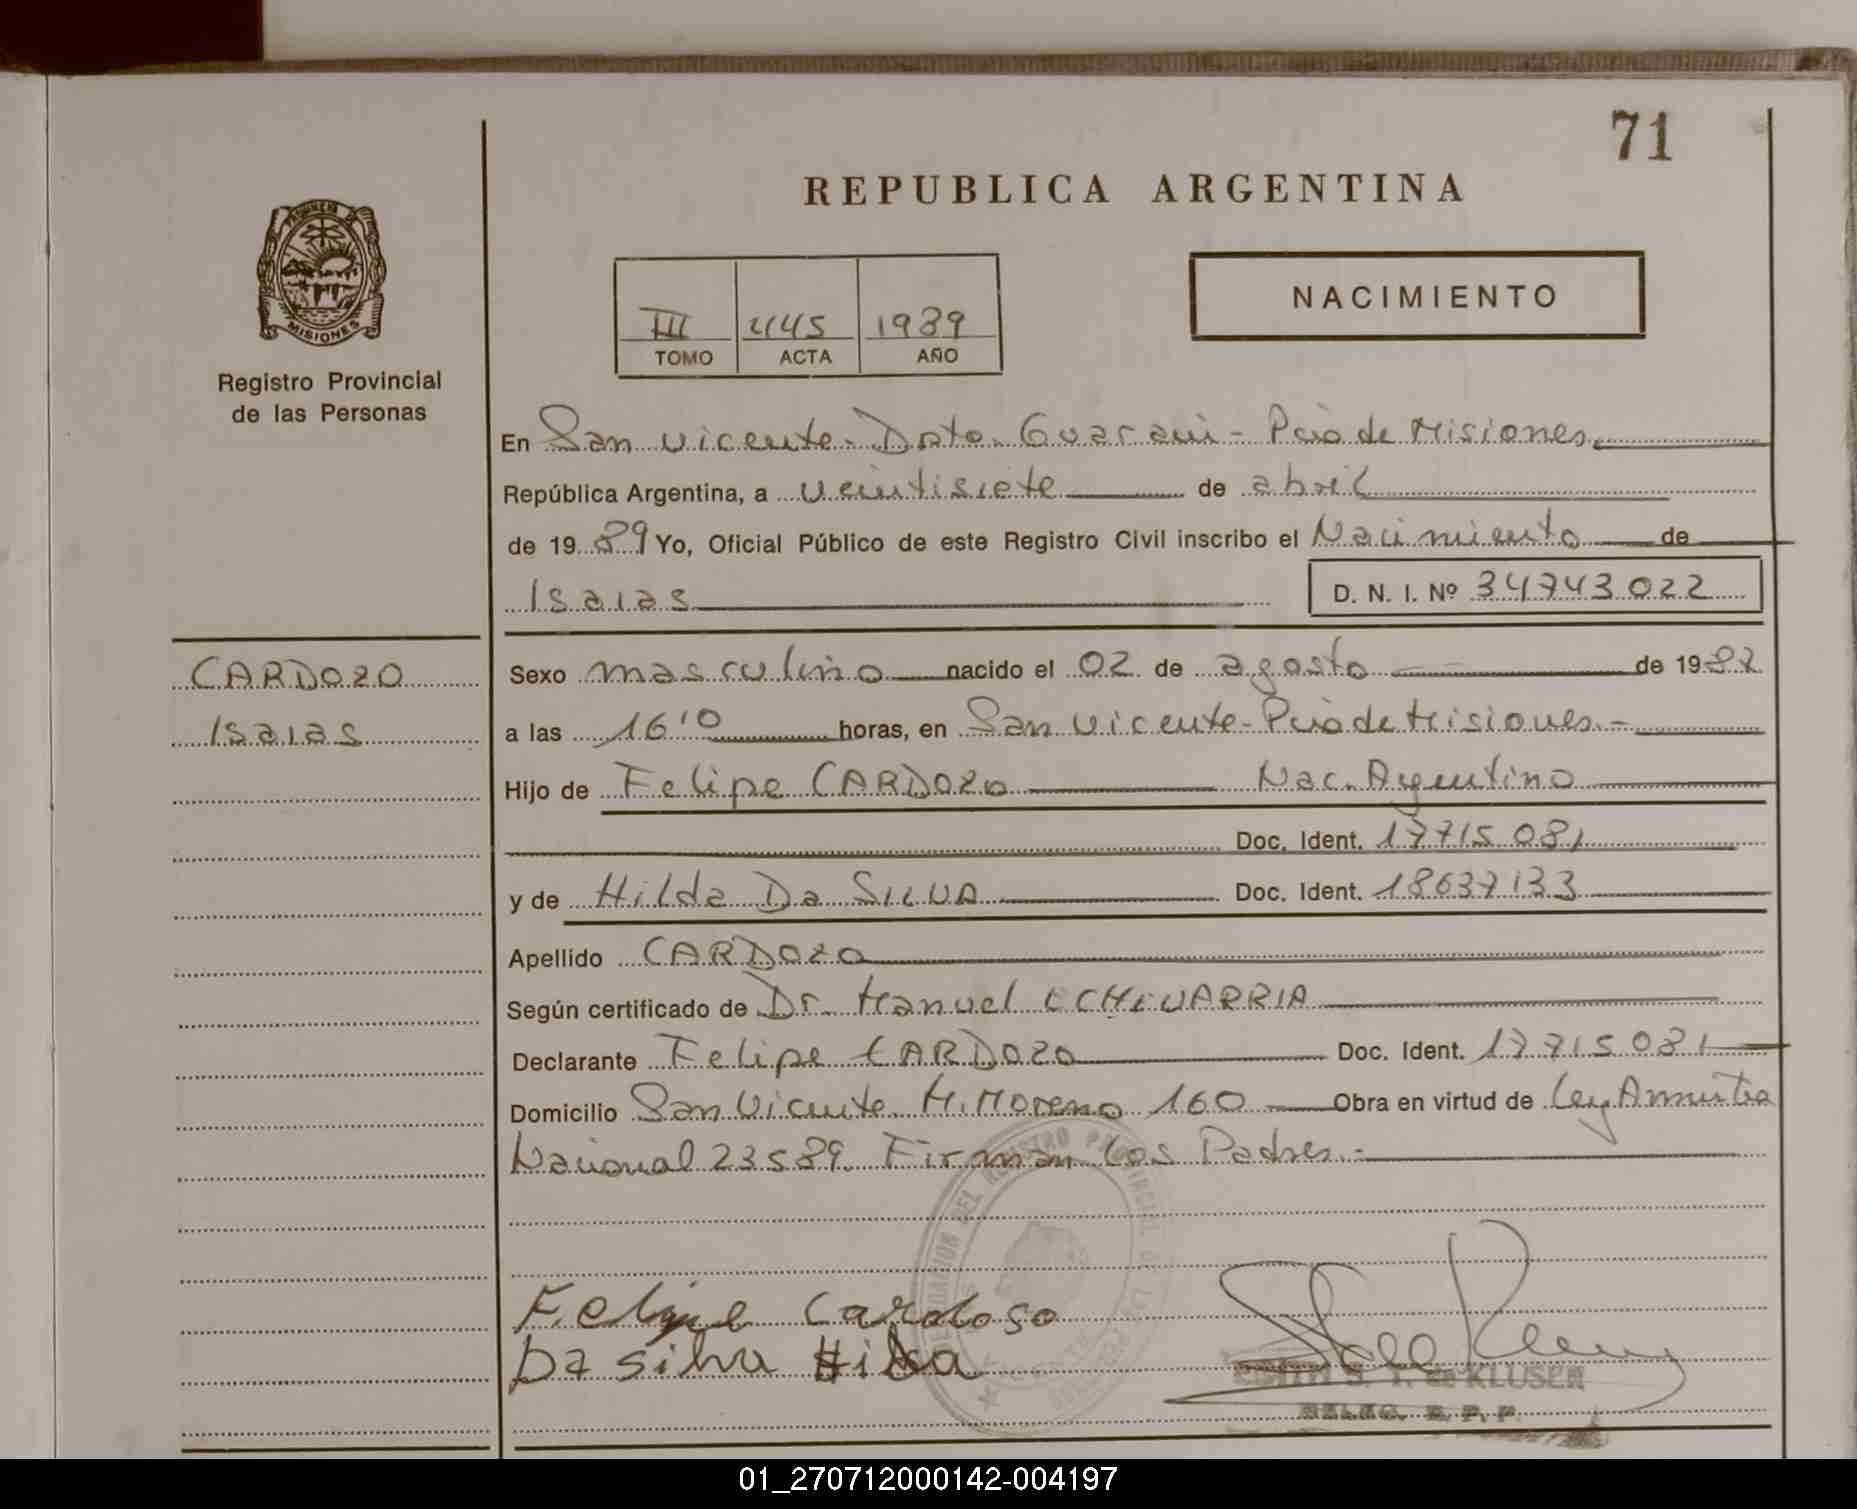 71
REPUBLICA ARGENTINA
PROVINCIA DE
MISIONES
Registro Provincial
de las Personas
NACIMIENTO
III 445 1989
TOMO ACTA AÑO
En San Vicente - Dpto. Guaraní - Pcia de Misiones
República Argentina, a veintisiete de abril
de 1989 Yo, Oficial Público de este Registro Civil inscribo el Nacimiento de
Isaias D. N. I. Nº 34743022
CARDOZO
Isaias
Sexo masculino nacido el 02 de agosto de 1987
a las 16'10 horas, en San Vicente - Pcia de Misiones.-
Hijo de Felipe CARDOZO Nac. Argentino
Doc. Ident. 17715081
y de Hilda Da SILVA Doc. Ident. 18637133
Apellido CARDOZO
Según certificado de Dr. Manuel ECHEVARRIA
Declarante Felipe CARDOZO Doc. Ident. 17715081
Domicilio San Vicente M. Moreno 160 Obra en virtud de Ley Amnistia
Nacional 23589. Firman los Padres.-
Felipe Cardoso
Da silva Hilda
S. T. de KLUSEN
DELEG. R. P. P.
01_270712000142-004197